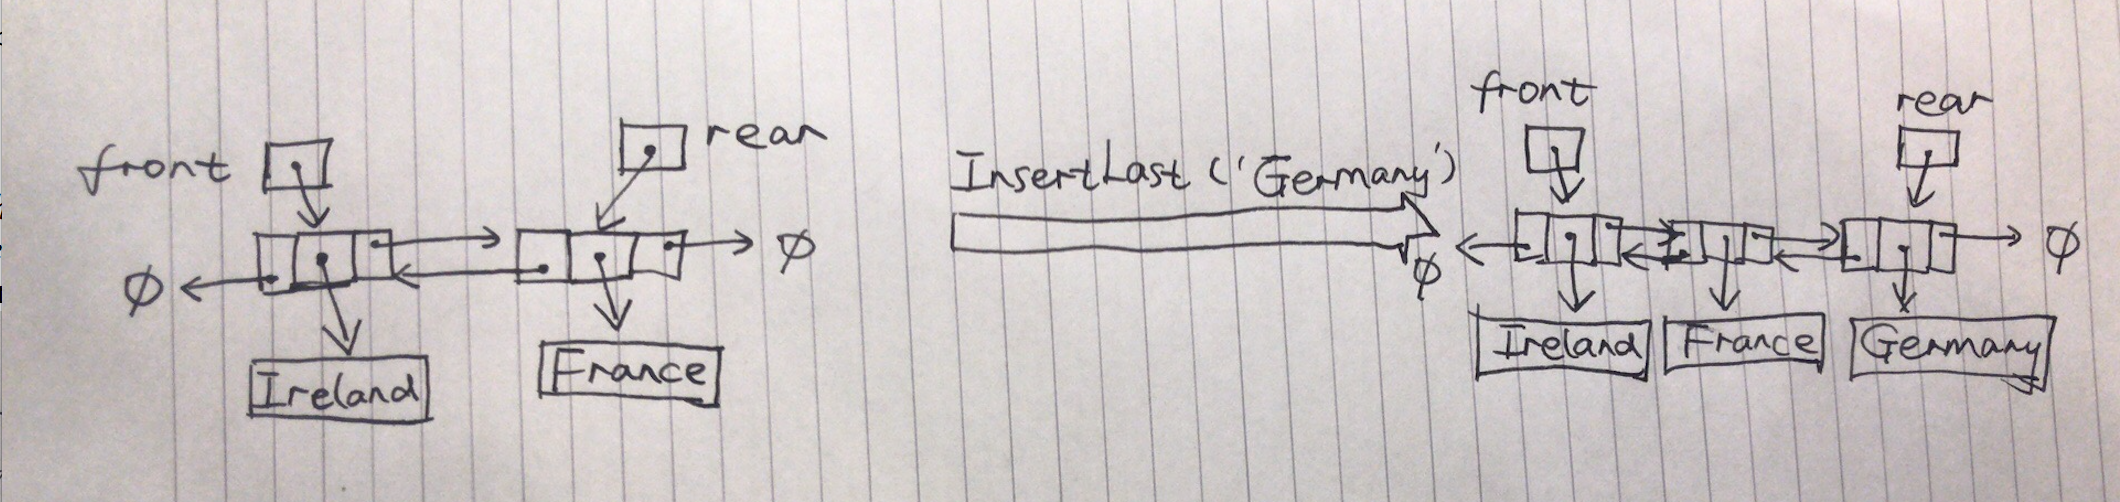 front
rear
Ø
Ø
Ireland
France
InsertLast ('Germany')
front
rear
Ø
Ø
Ireland
France
Germany